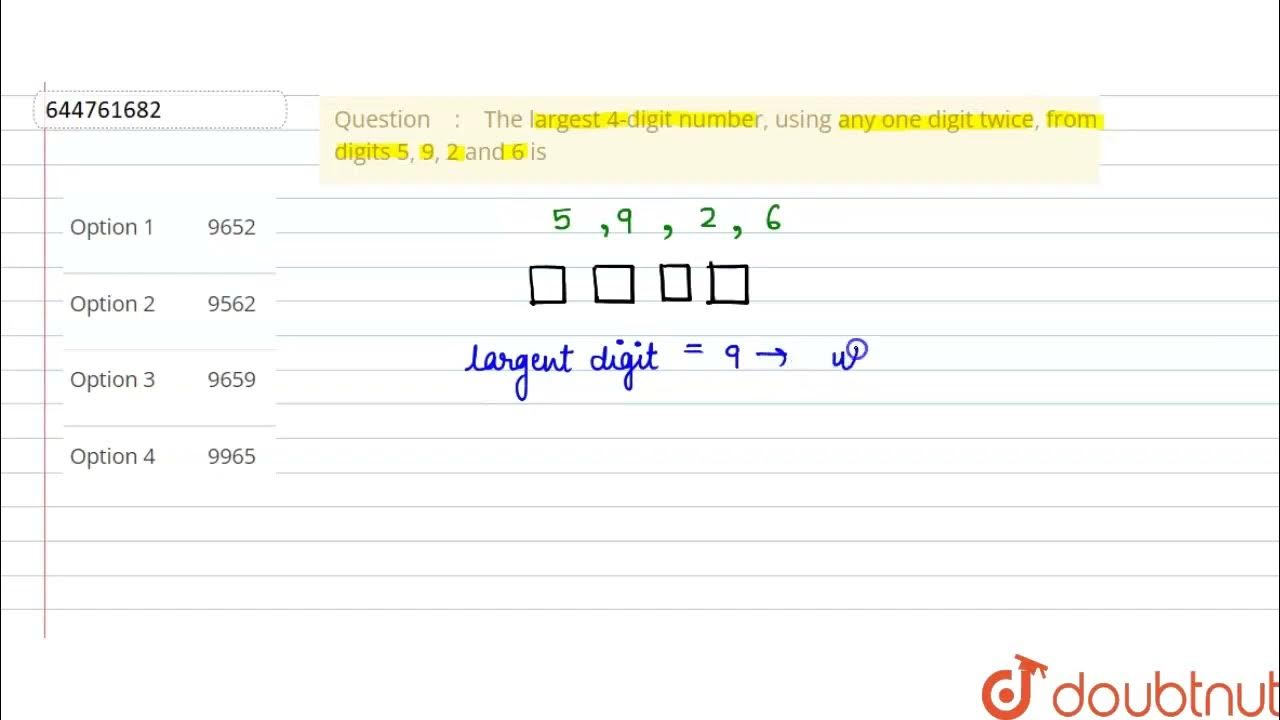 644761682
Question : The largest 4-digit number, using any one digit twice, from
digits 5, 9, 2 and 6 is
Option 1 9652
Option 2 9562
Option 3 9659
Option 4 9965
5 , 9 , 2 , 6
largent digit = 9 →
doubtnut